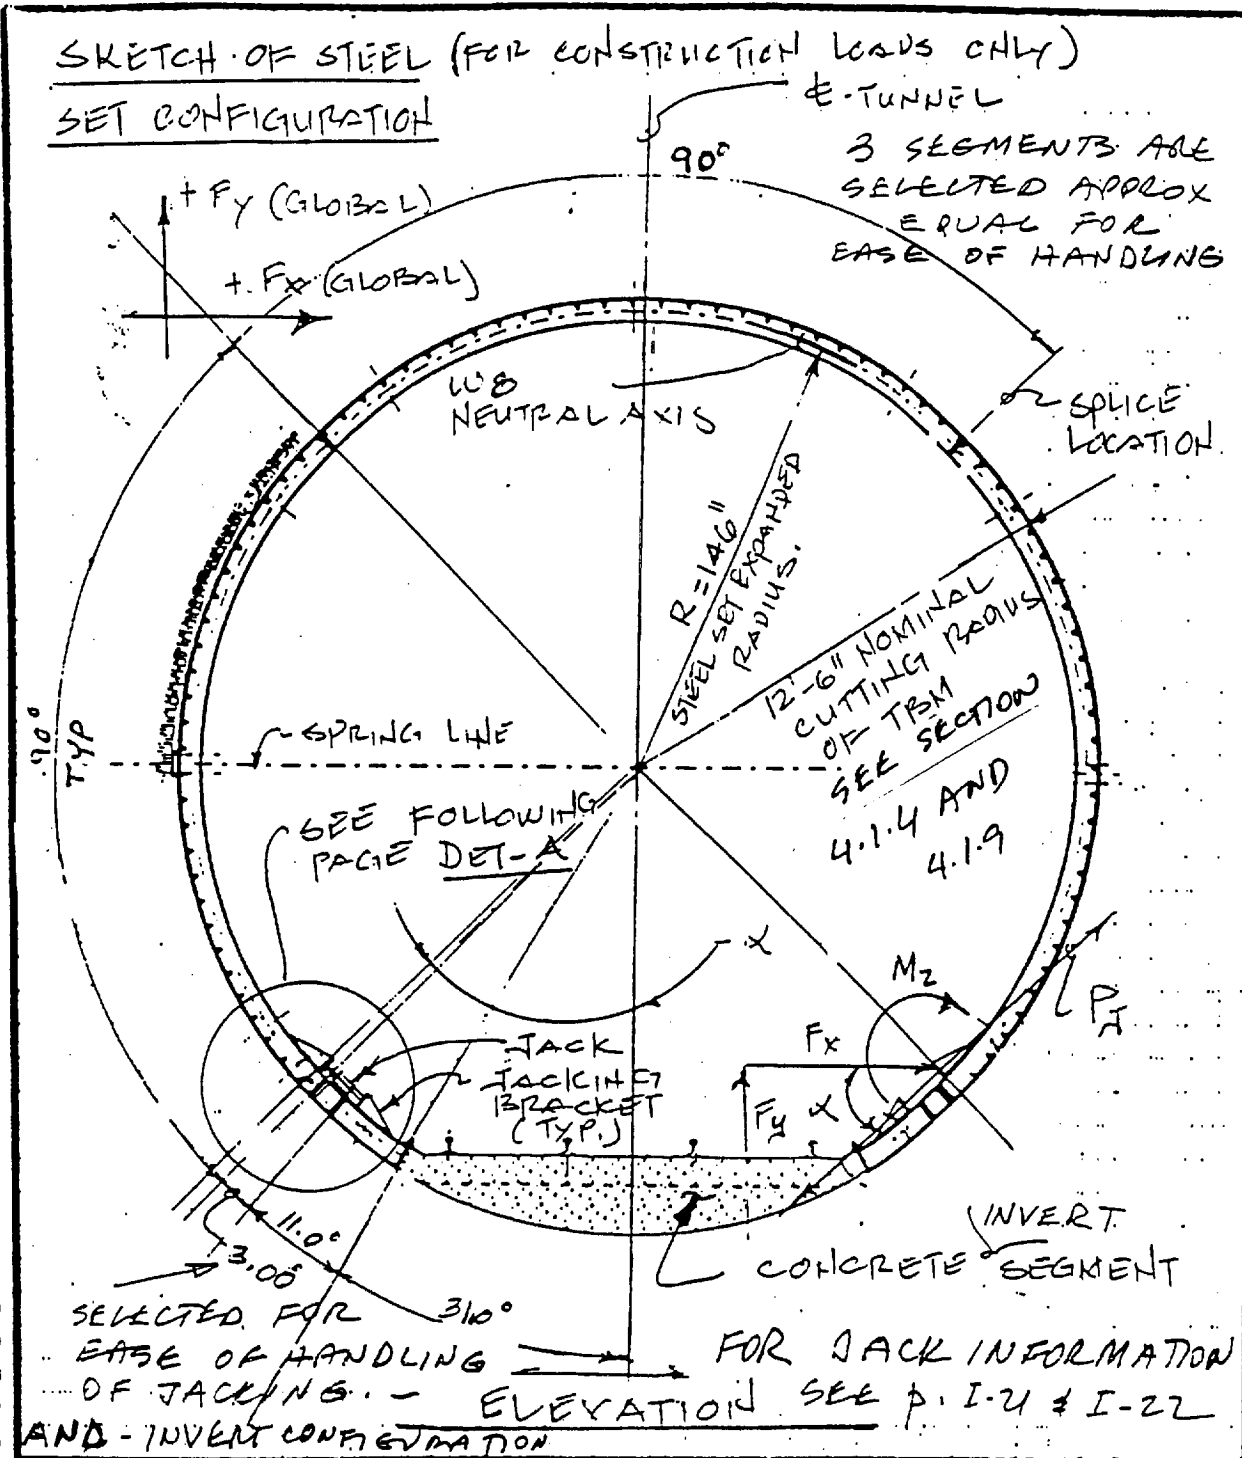 SKETCH OF STEEL (FOR CONSTRUCTION LOADS ONLY)
SET CONFIGURATION
℄ TUNNEL
90°
3 SEGMENTS ARE
SELECTED APPROX
EQUAL FOR
EASE OF HANDLING
+ Fy (GLOBAL)
+ Fx (GLOBAL)
W8
NEUTRAL AXIS
SPLICE
LOCATION
R = 146"
STEEL SET EXPANDED
RADIUS.
12'-6" NOMINAL
CUTTING RADIUS
OF TBM
SEE SECTION
4.1.4 AND
4.1.9
90°
TYP
SPRING LINE
SEE FOLLOWING
PAGE DET-A
α
Mz
PJ
Fx
JACK
JACKING
BRACKET
(TYP.)
Fy
α
11.0°
3.00°
31.0°
INVERT
CONCRETE SEGMENT
SELECTED FOR
EASE OF HANDLING
OF JACKING. -
AND - INVERT CONFIGURATION
ELEVATION
FOR JACK INFORMATION
SEE p. I-21 & I-22